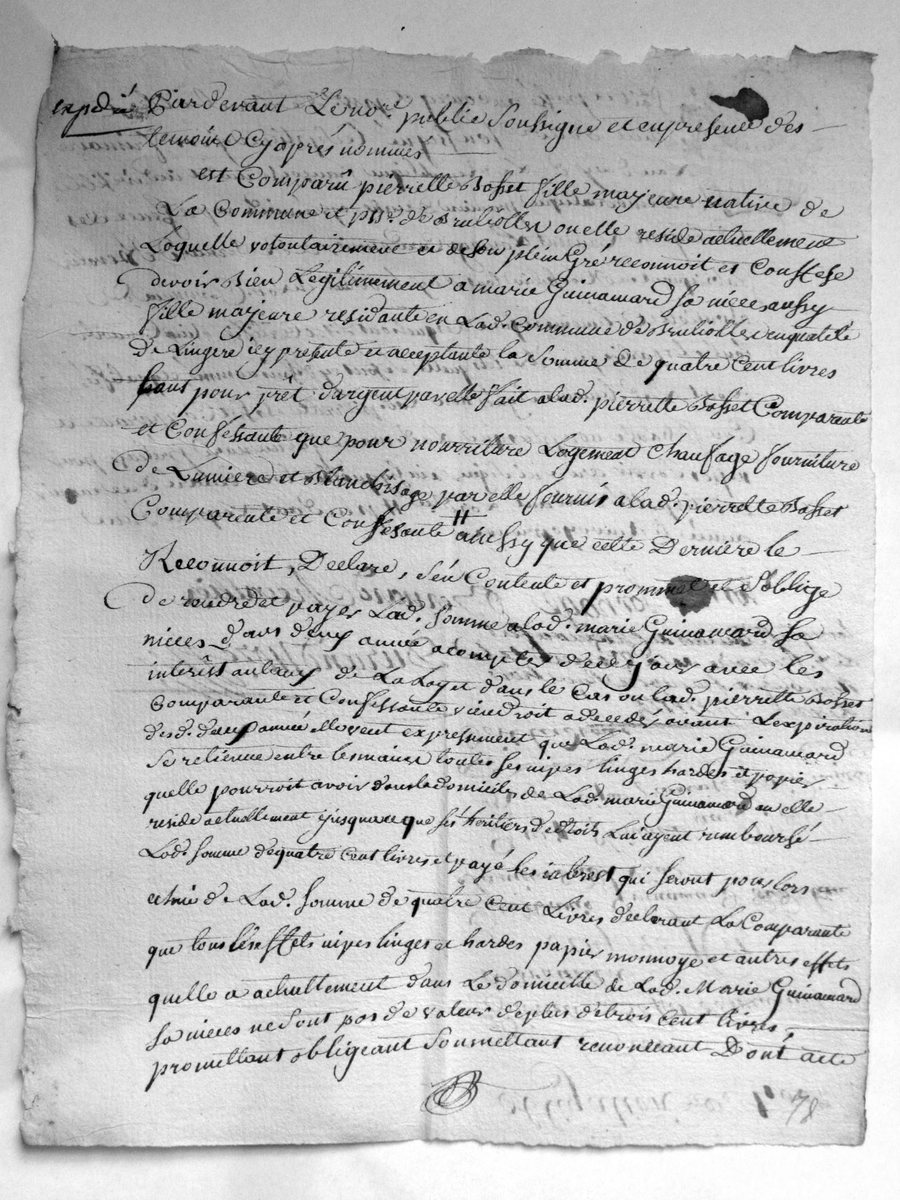 expedié Pardevant Le no.re public Soussigné et en presence des
temoins Cy aprés nommés
est Comparû pierrette Bosset fille majeure native de
La Commune et p.sse de Brulliolle ou elle reside actuellement
Laquelle volontairement et de son plein Gré reconnoit et Confesse
devoir Bien Legitimement a marie Guinamard sa niece aussy
fille majeure residante en Lad. Commune de Brulliolle en qualité
de Lingere icy presente et acceptante la Somme de quatre Cent livres
tant pour prêt d'argent par elle fait a lad. pierrette Bosset Comparante
et Confessante que pour nourriture Logement Chaufage fourniture
de Lumiere et Blanchisage par elle fournis a lad. pierrette Bosset
Comparante et Confessante H ainssy que cette Derniere le
Reconnoit, Declare, s'en Contente et prommet et S'oblige
De rendre et payer Lad. Somme a lad. marie Guinamard sa
niece dans deux année a compter de ce jour avec les
interêst au taux de La Loy et dans le Cas ou lad. pierrette Bosset
Comparante et Confessante viendroit a deceder avant L'expiration
desd. deux année elle veut expressement que Lad. marie Guinamard
Se retienne entre les mains toutes ses nipes linges hardes et papier
quelle pourroit avoir dans le domicile de Lad. marie Guinamard ou elle
reside actuellement jusqua ce que ses heritiers de droits Luy ayent remboursé
Lad. Somme de quatre Cent livres et payé les interest qui seront pour lors
de Lad. Somme de quatre Cent Livres declarant La Comparante
que tous les effets nipes linges et hardes papier monnoye et autres effets
quelle a actuellement dans Le domicille de Lad. Marie Guinamard
sa niece ne sont pas de valeur de plus de trois Cent livres,
promettant obligeant Soumettant renoncant Dont acte
78